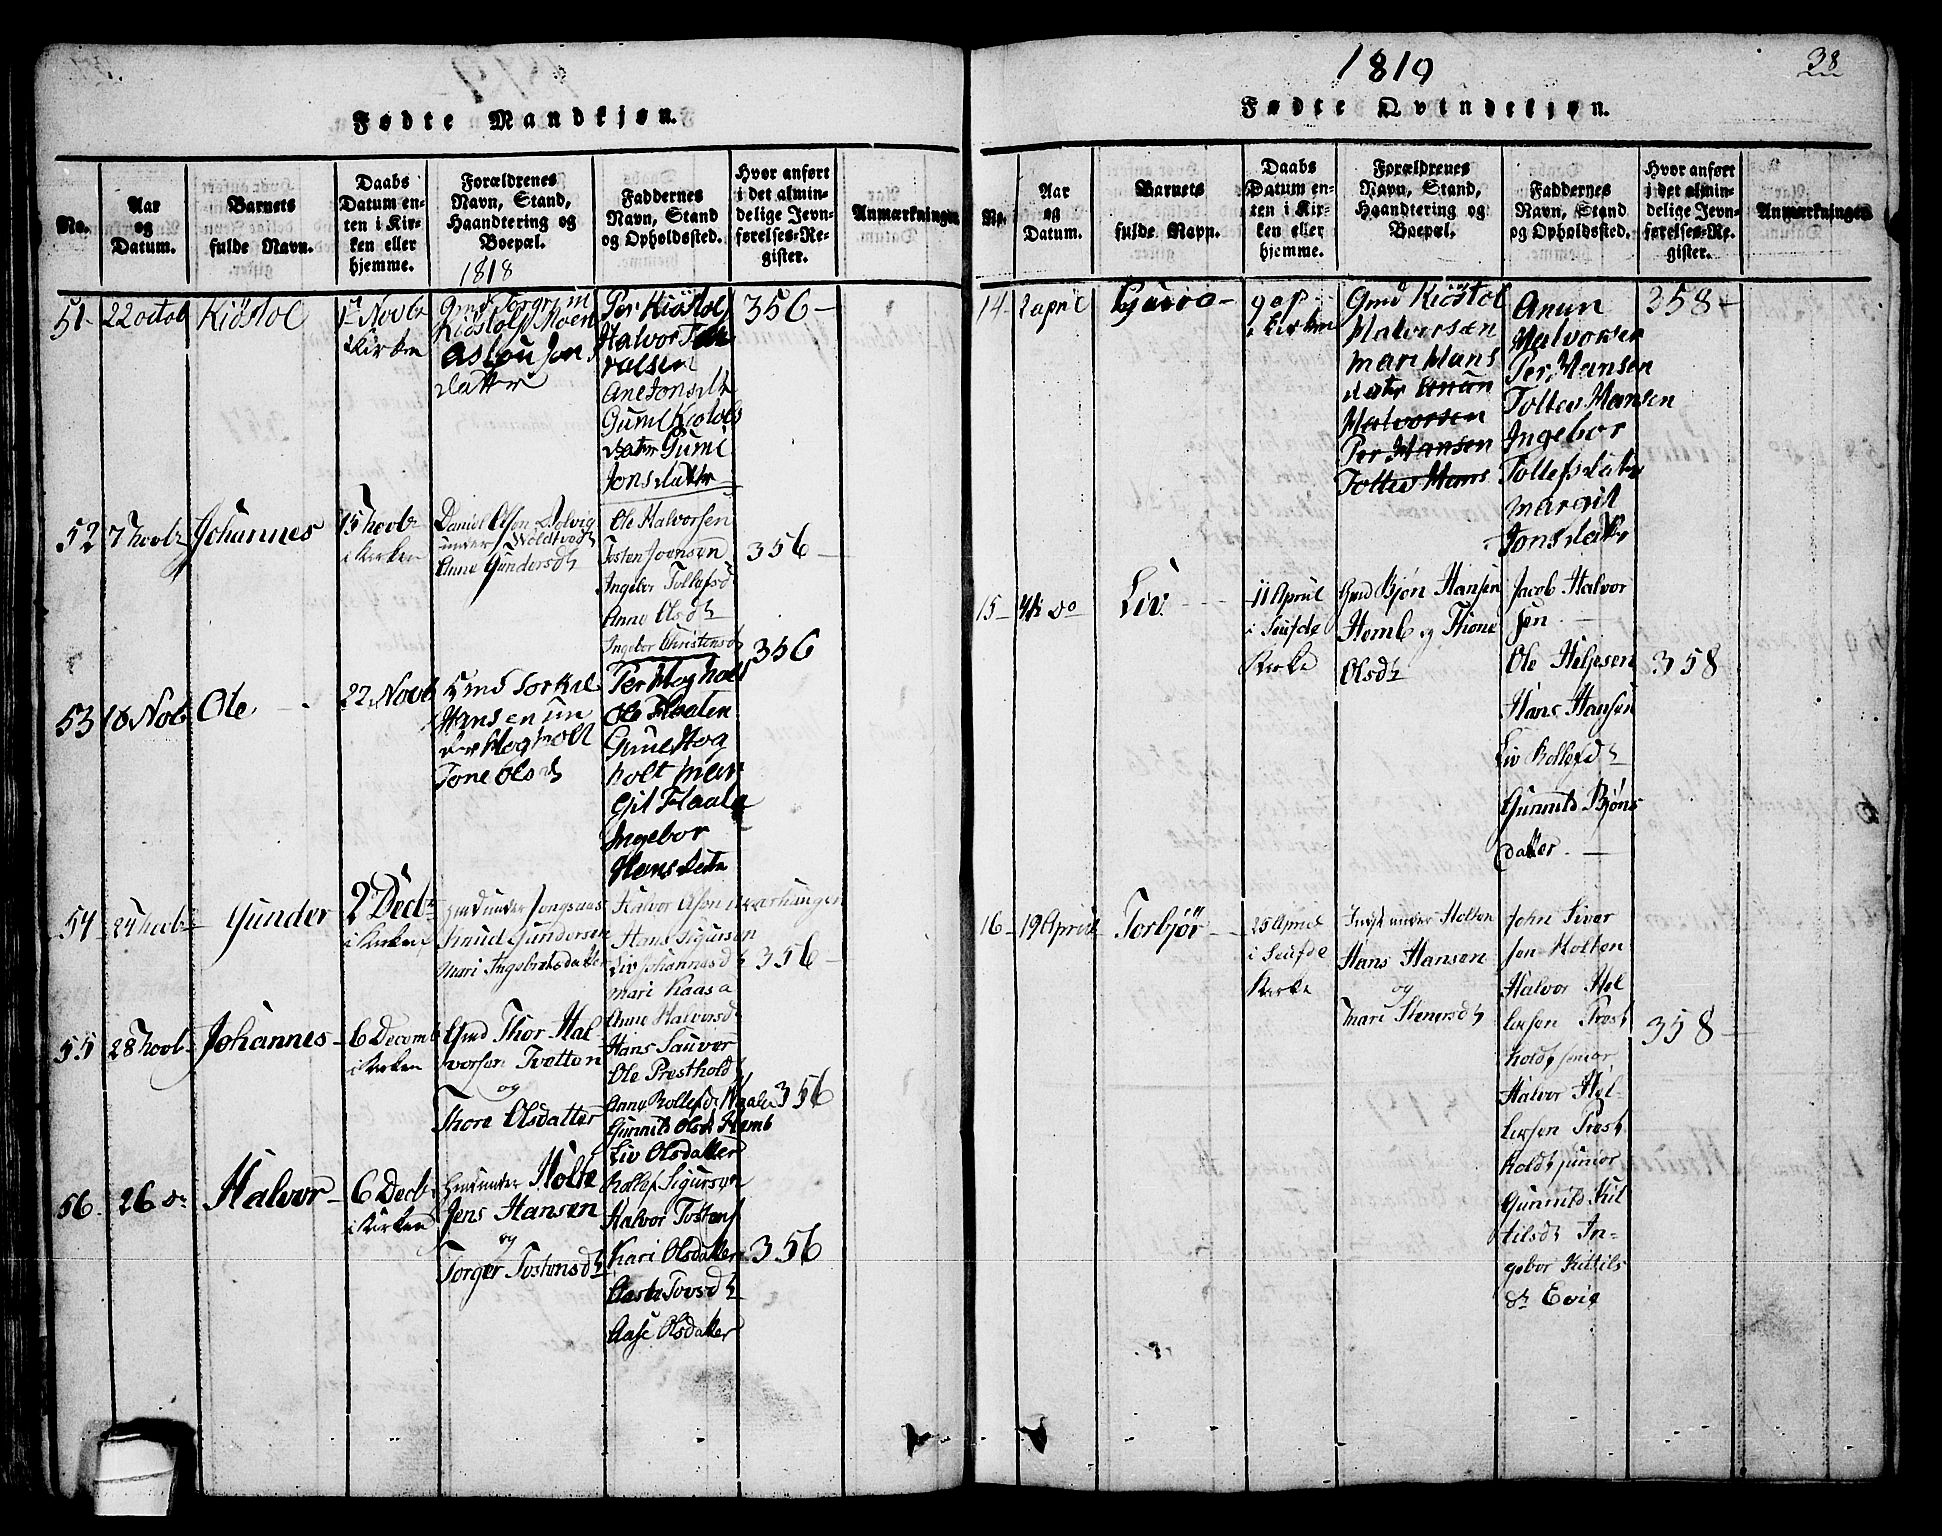 Fødte Mandkjøn.
No.
Aar og Datum.
Barnets fulde Navn.
Daabs Datum enten i Kirken eller hjemme.
Forældrenes Navn, Stand, Haandtering og Boepæl.
1818
Faddernes Navn, Stand og Opholdssted.
Hvor anført i det almindelige Jevnførelses-Register.
Anmærkninger
51
22 octob
Kiöstol
1 Novbr
i Kirken
Gmd Torgrim
Kiöstols Moen
Aslou Jons
datter
Per Kiöstols
Halvor
Ane Jonsdt
datter Gumi
Jonsdatter
356
52
7 novbr
Johannes
15 novbr
i Kirken
Daniel Olsen
under
Anne Gundersd
Ole Halvorsen
Tosten Joensen
Ingebor Tollefsd
Anne Olsd
Ingebor Christensd
356
53
10 Novb
Ole
22 Novb
Torkil
Hansen un
der Hogholt
Tone Olsd
Per Hogholt
Ole Flaaten
Gunil Hog
holt Mar
git Flaata
Ingebor
Hansdatte
356
54
24 novbr
Gunder
2 Decbr
i Kirken
Knud Gundersen
Mari Ingebretsdatter
Halvor Olsen
Hans Sigursen
Liv Johannesd
Mari Kaasa
356
55
28 novb
Johannes
6 Decemb
i Kirken
Gmd Thor Hal
vorsen Tveten
og
Thore Olsdatter
Anne Halvorsd
Hans Sauver
Ole Prestholdt
Anne Rollefsd
Gunnild Olsd Hemb
Liv Olsdatter
356
56
26 do
Halvor
6 Decb
i Kirken
under Holte
Jens Hansen
og
Torger Tostensd
Rollef Sigursen
Halvor Tostens
Kari Olsdatter
Aaste Tovsd
Aase Olsdatter
356
1819
38
Fødte Qvindekjøn.
No.
Aar og Datum.
Barnets fulde Navn.
Daabs Datum enten i Kirken eller hjemme.
Forældrenes Navn, Stand, Haandtering og Boepæl.
Faddernes Navn, Stand og Opholdssted.
Hvor anført i det almindelige Jevnførelses-Register.
Anmærkninger
14
2 april
Guro
9 ap
i Kirken
Gmd Kiöstol
Halvorsen
Mari Hans
dater Anun
Halvorsen
Per Hansen
Tollev Hans
Anun
Halvorsen
Per Hansen
Tollev Hansen
Ingebor
Tollefsdater
Margit
Jonsdater
358
15
do
Liv
11 April
i Seufde
Kirke
Gmd Bjøn Hansen
Hemb og Thone
Olsd
Jacob Halvor
sen
Ole Helgesen
Hans Hansen
Liv Rollefsd
Gunnild Bjøns
datter
358
16
19 April
Torbjør
25 April
i Seufde
Kirke
under Holten
Hans Hansen
og
Mari Stenersd
John Siver
sen Holten
Halvor Hel
lersen Prest
holdt senior
Halvor Hel
lersen Prest
holdt junior
Gunnild Kit
tilsd In
gebor Kittils
dr Evie
358